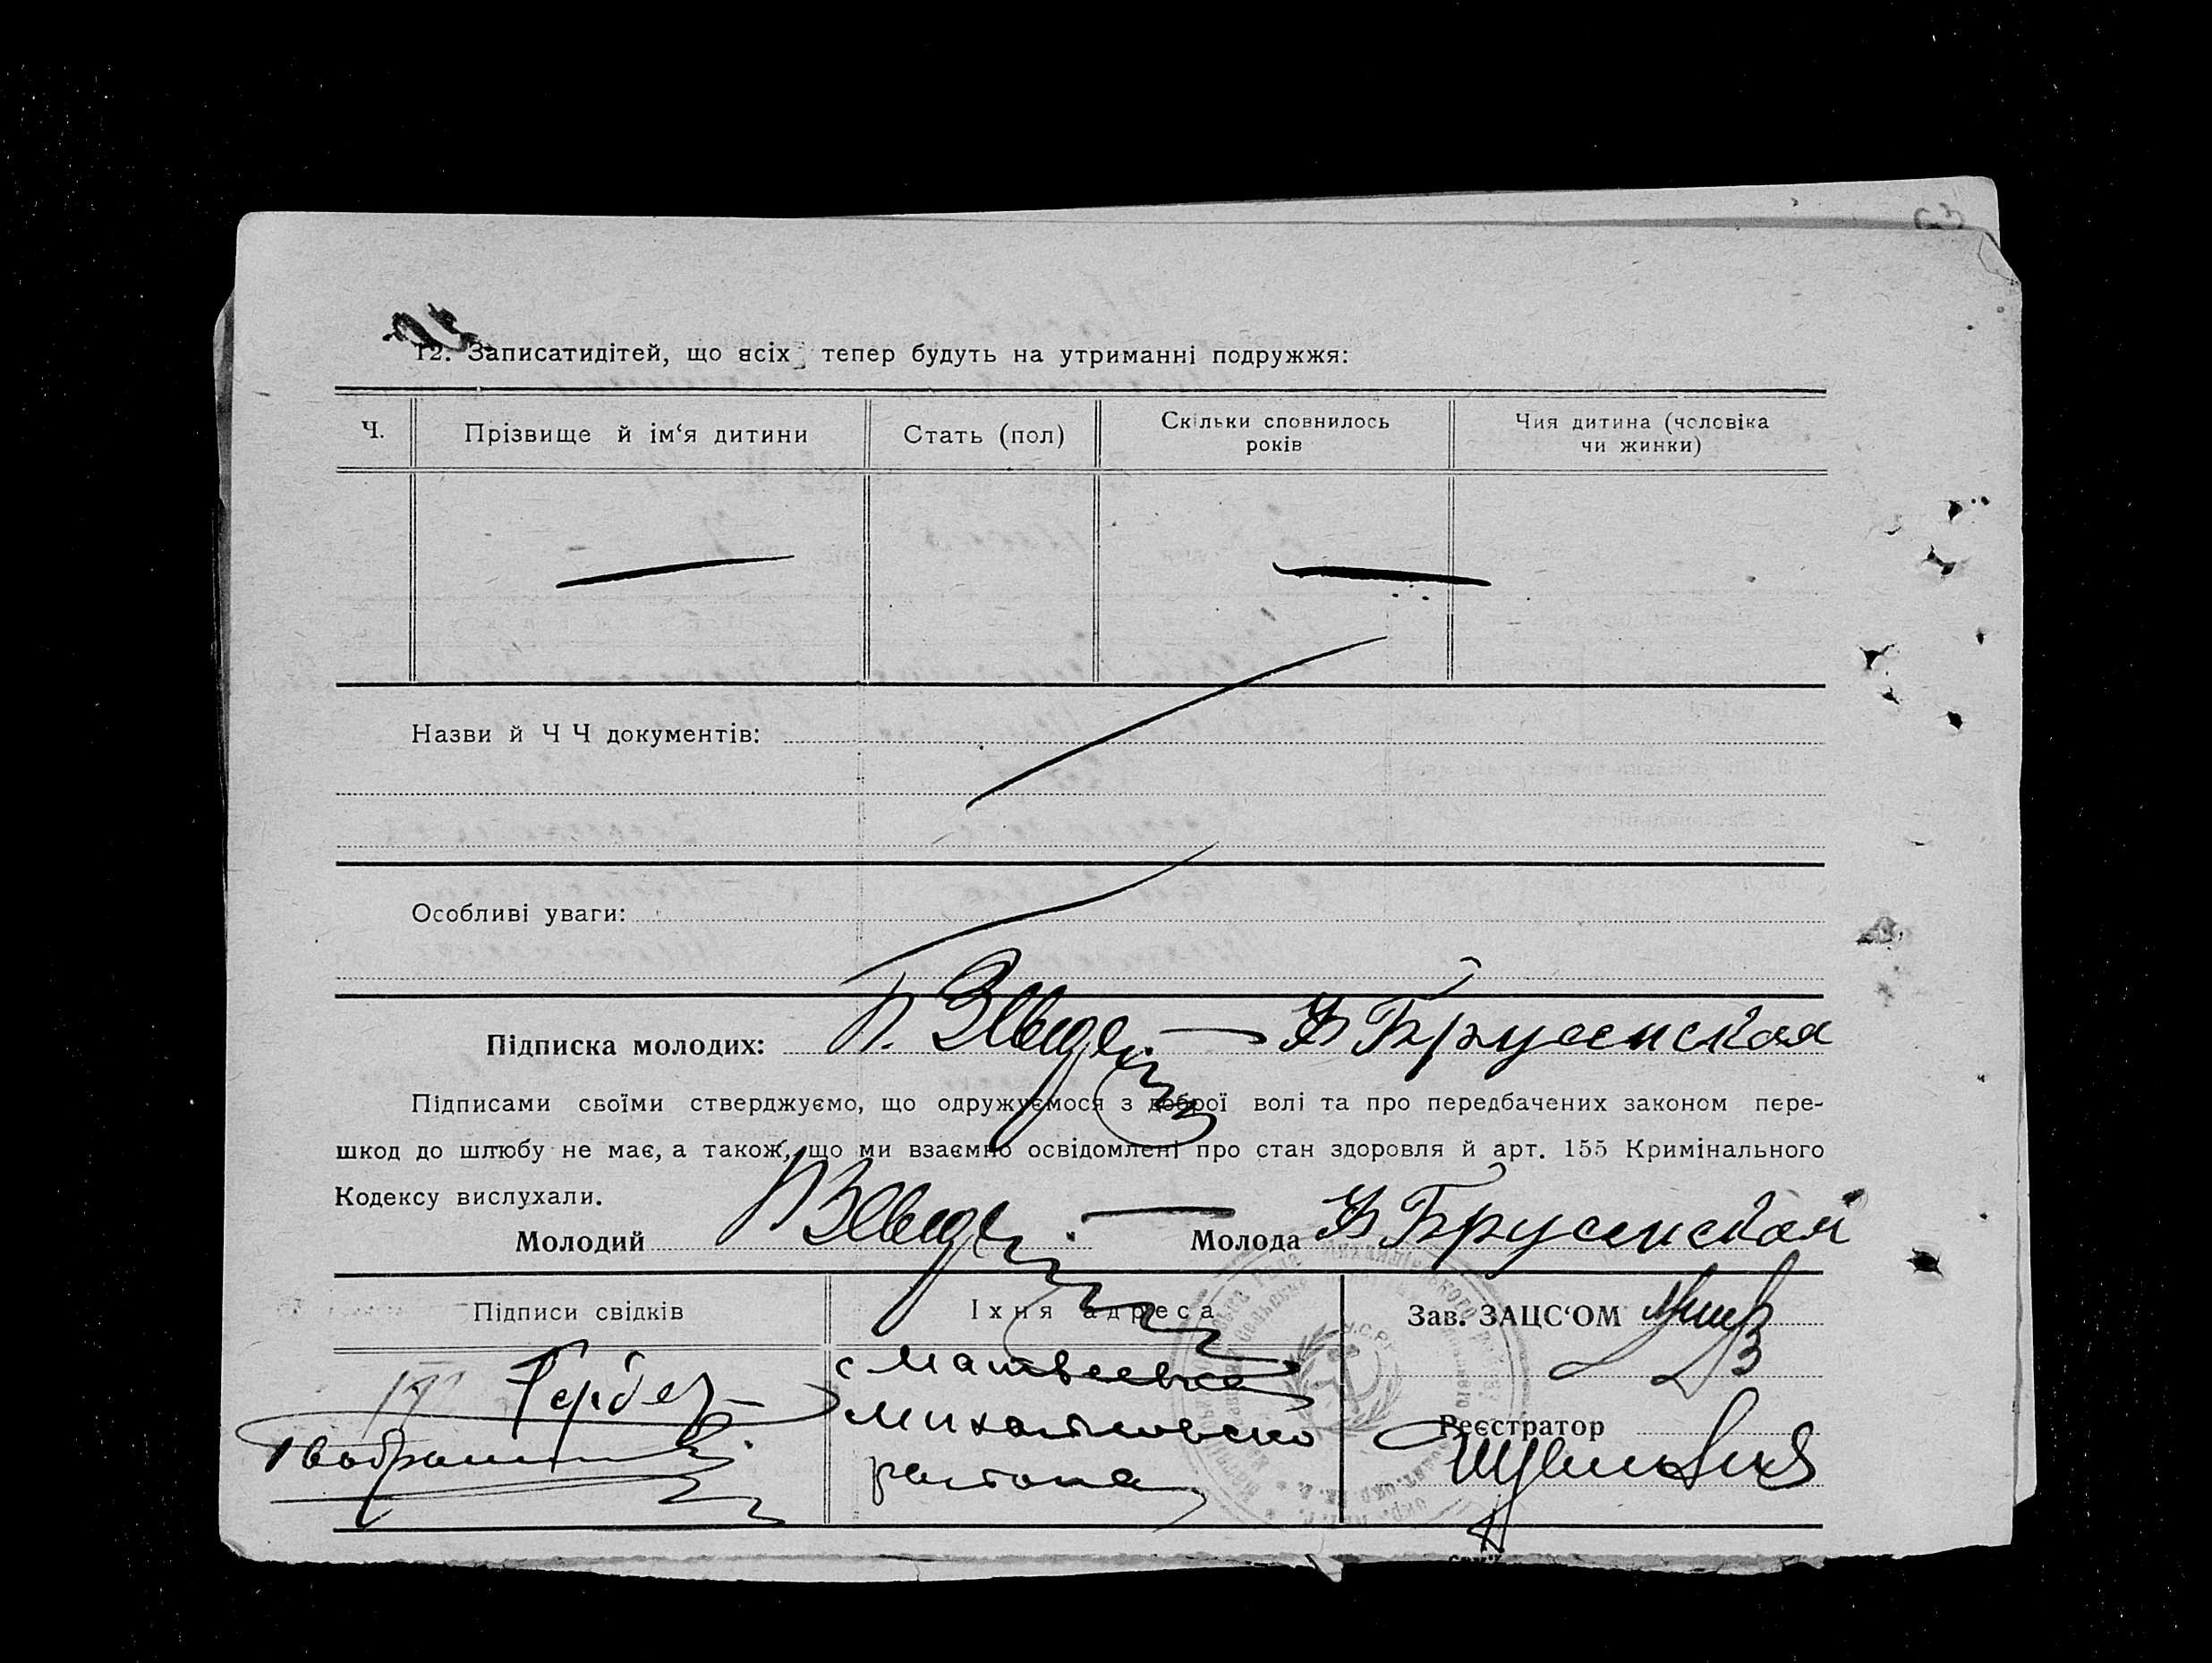 12. Записатидітей, що всіх тепер будуть на утриманні подружжя:
Ч.
Прізвище й ім‘я дитини
Стать (пол)
Скільки сповнилось
років
Чия дитина (чоловіка
чи жинки)
Назви й Ч Ч документів:
Особливі уваги:
Підписка молодих: Брусенская
Підписами своїми стверджуємо, що одружуємося з доброї волі та про передбачених законом пере-
шкод до шлюбу не має, а також, що ми взаємно освідомлені про стан здоровля й арт. 155 Кримінального
Кодексу вислухали.
Молодий
Молода Брусенская
Підписи свідків
Іхня адреса
Зав. ЗАЦС‘ОМ
Гербер
с Матвеевка
Михайловско
района
Реєстратор